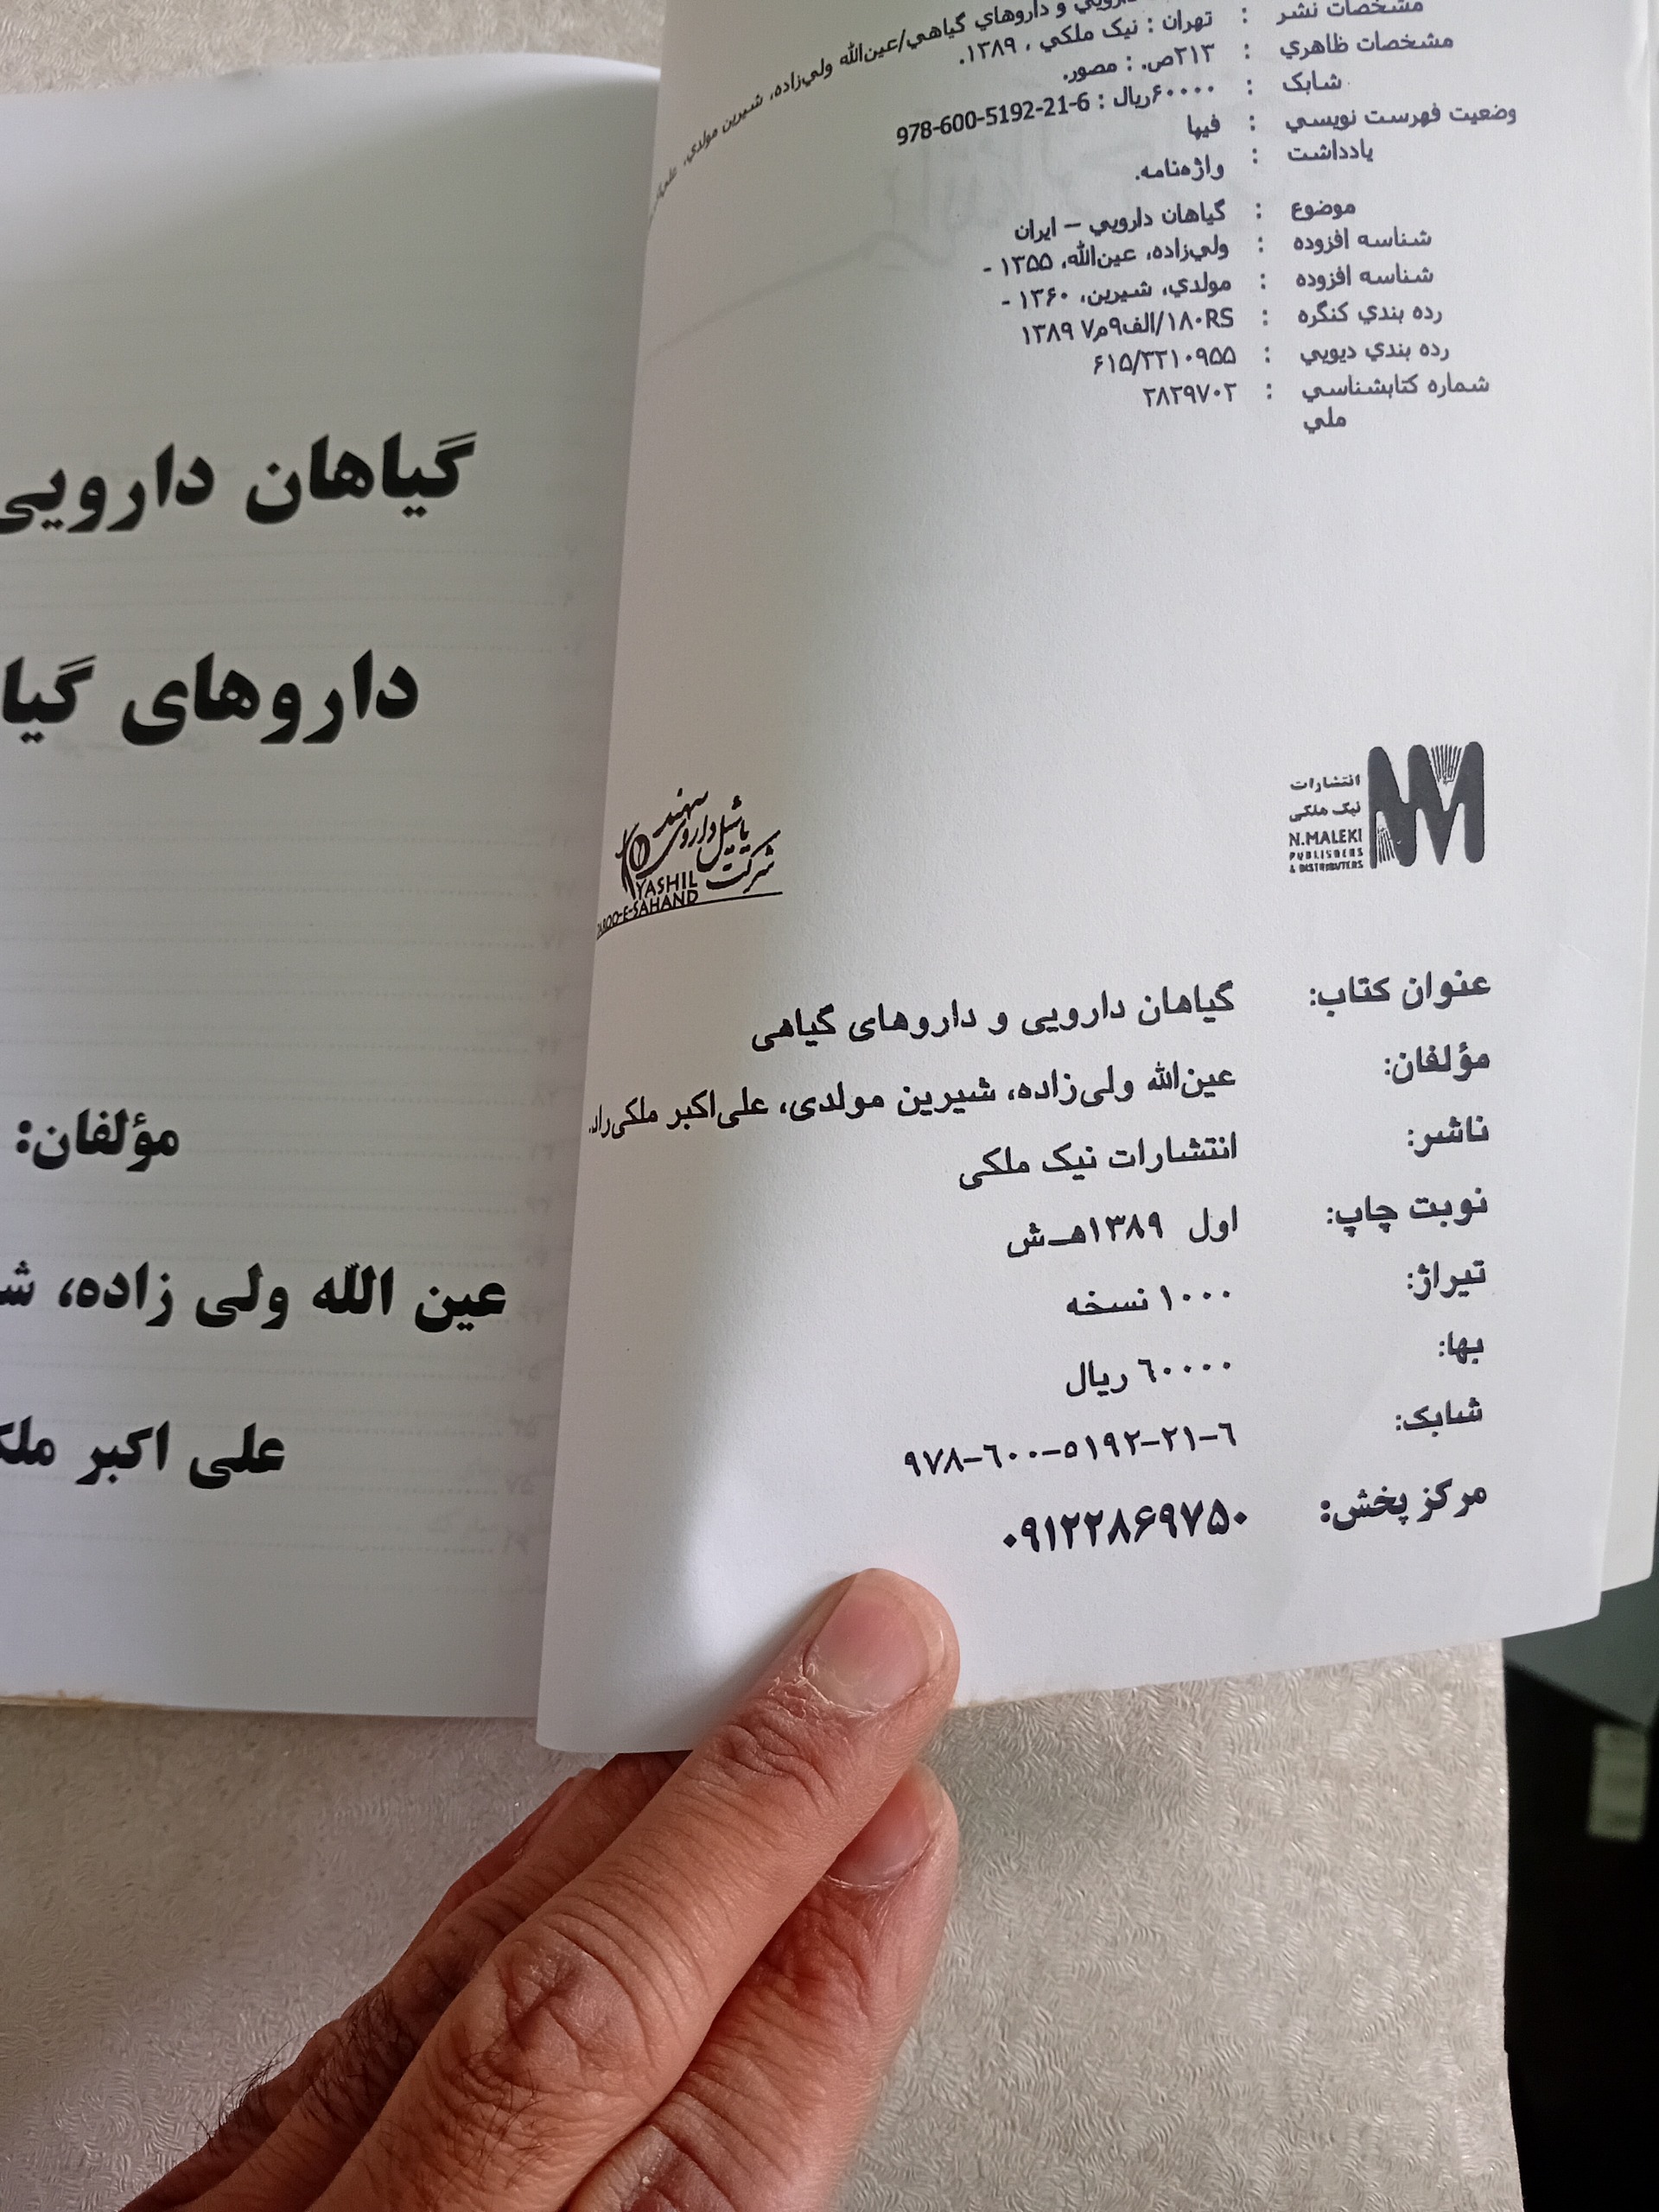 مشخصات نشر : تهران : نیک ملکي ، ۱۳۸۹.
و داروهاي گياهي/عين‌الله ولي‌زاده، شيرين مولدي،
مشخصات ظاهري : ۲۱۳ص. : مصور.
شابک : ۶۰۰۰۰ريال : 978-600-5192-21-6
وضعيت فهرست نويسي : فيپا
يادداشت : واژه‌نامه.
موضوع : گياهان دارويي – ايران
شناسه افزوده : ولي‌زاده، عين‌الله، ۱۳۵۵ -
شناسه افزوده : مولدي، شيرين، ۱۳۶۰ -
رده بندي کنگره : ۱۸۰RS/الف۹م۷ ۱۳۸۹
رده بندي ديويي : ۶۱۵/۳۲۱۰۹۵۵
شماره کتابشناسي ملي : ۲۸۲۹۷۰۲
انتشارات
نیک ملکی
N.MALEKI
PUBLISHERS
& DISTRIBUTERS
شرکت یاشیل داروی سهند
YASHIL
DAROO-E-SAHAND
عنوان کتاب: گیاهان دارویی و داروهای گیاهی
مؤلفان: عین‌الله ولی‌زاده، شیرین مولدی، علی‌اکبر ملکی‌راد
ناشر: انتشارات نیک ملکی
نوبت چاپ: اول ۱۳۸۹هـ‌ش
تیراژ: ۱۰۰۰ نسخه
بها: ٦٠٠٠٠ ریال
شابک: ٩٧٨-٦٠٠-٥١٩٢-٢١-٦
مرکز پخش: ۰۹۱۲۲۸۶۹۷۵۰
گیاهان دارویی
داروهای
مؤلفان:
عین الله ولی زاده،
علی اکبر